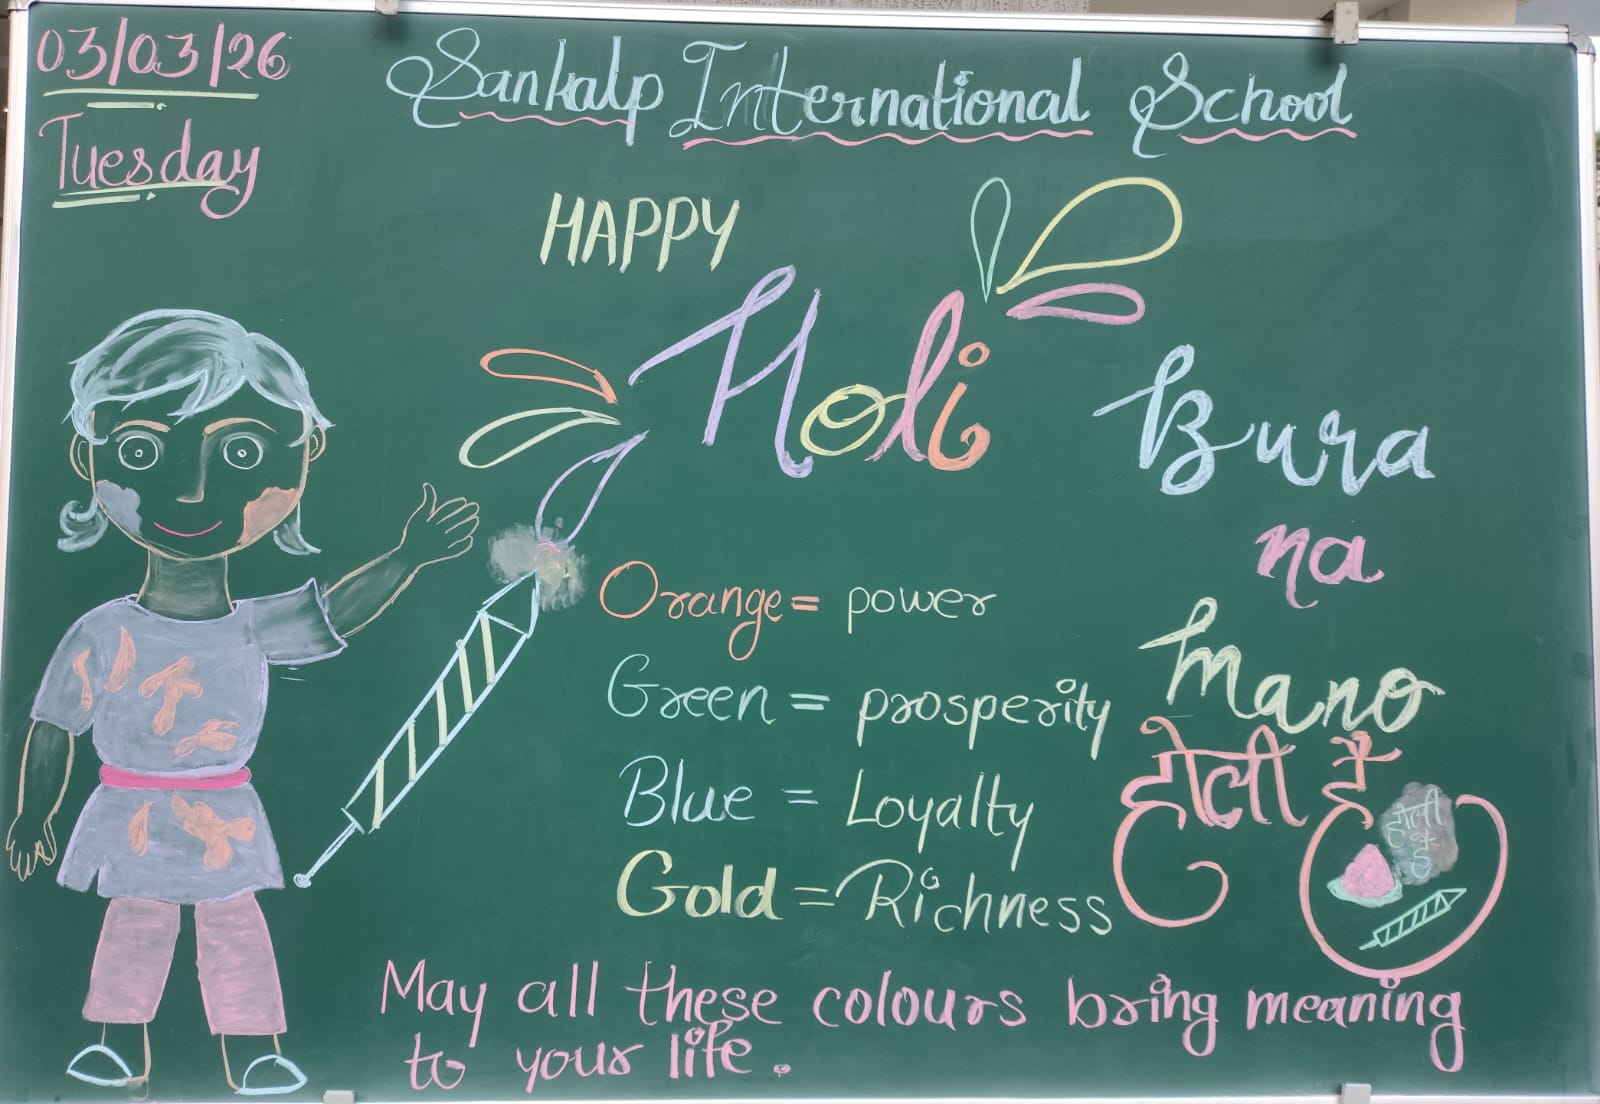 03/03/26
Tuesday
Sankalp International School
HAPPY
Holi
Bura
na
mano
होली है
होली है
Orange = power
Green = prosperity
Blue = Loyalty
Gold = Richness
May all these colours bring meaning
to your life.